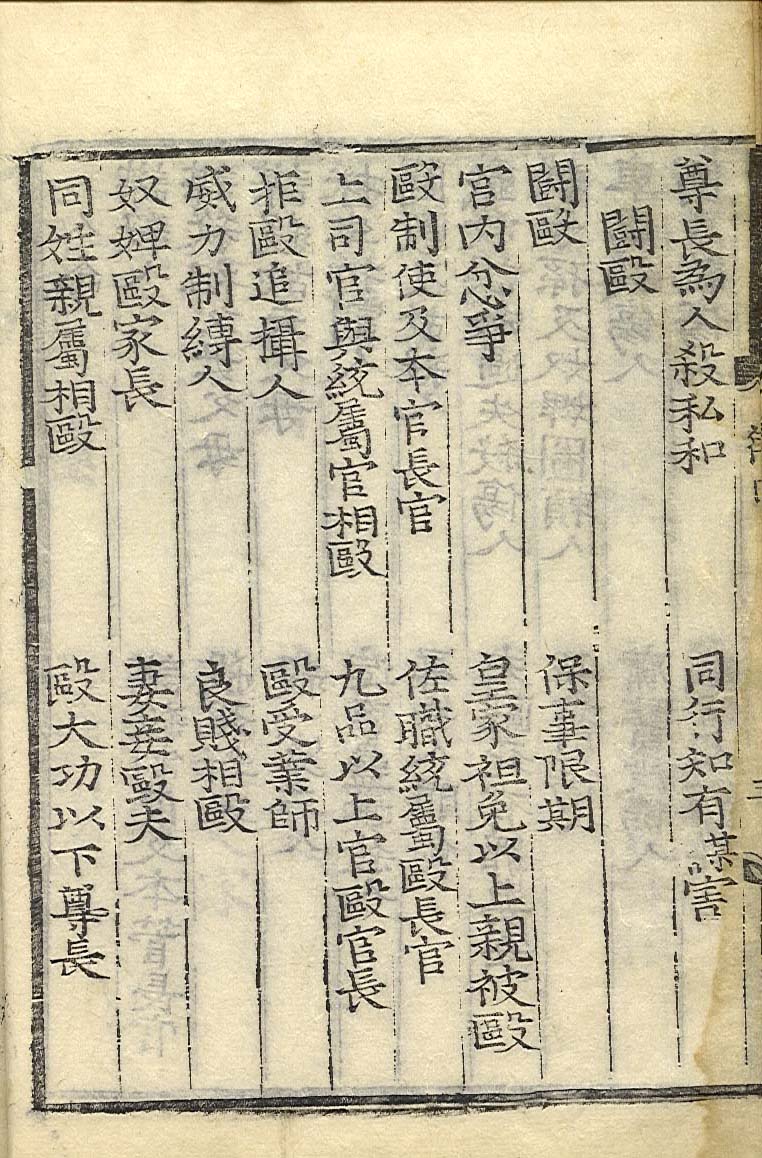 尊長為人殺私和　同行知有謀害
鬪毆
鬪毆　保辜限期
宮內忿爭　皇家袒免以上親被毆
毆制使及本官長官　佐職統屬毆長官
上司官與統屬官相毆　九品以上官毆官長
拒毆追攝人　毆受業師
威力制縛人　良賤相毆
奴婢毆家長　妻妾毆夫
同姓親屬相毆　毆大功以下尊長